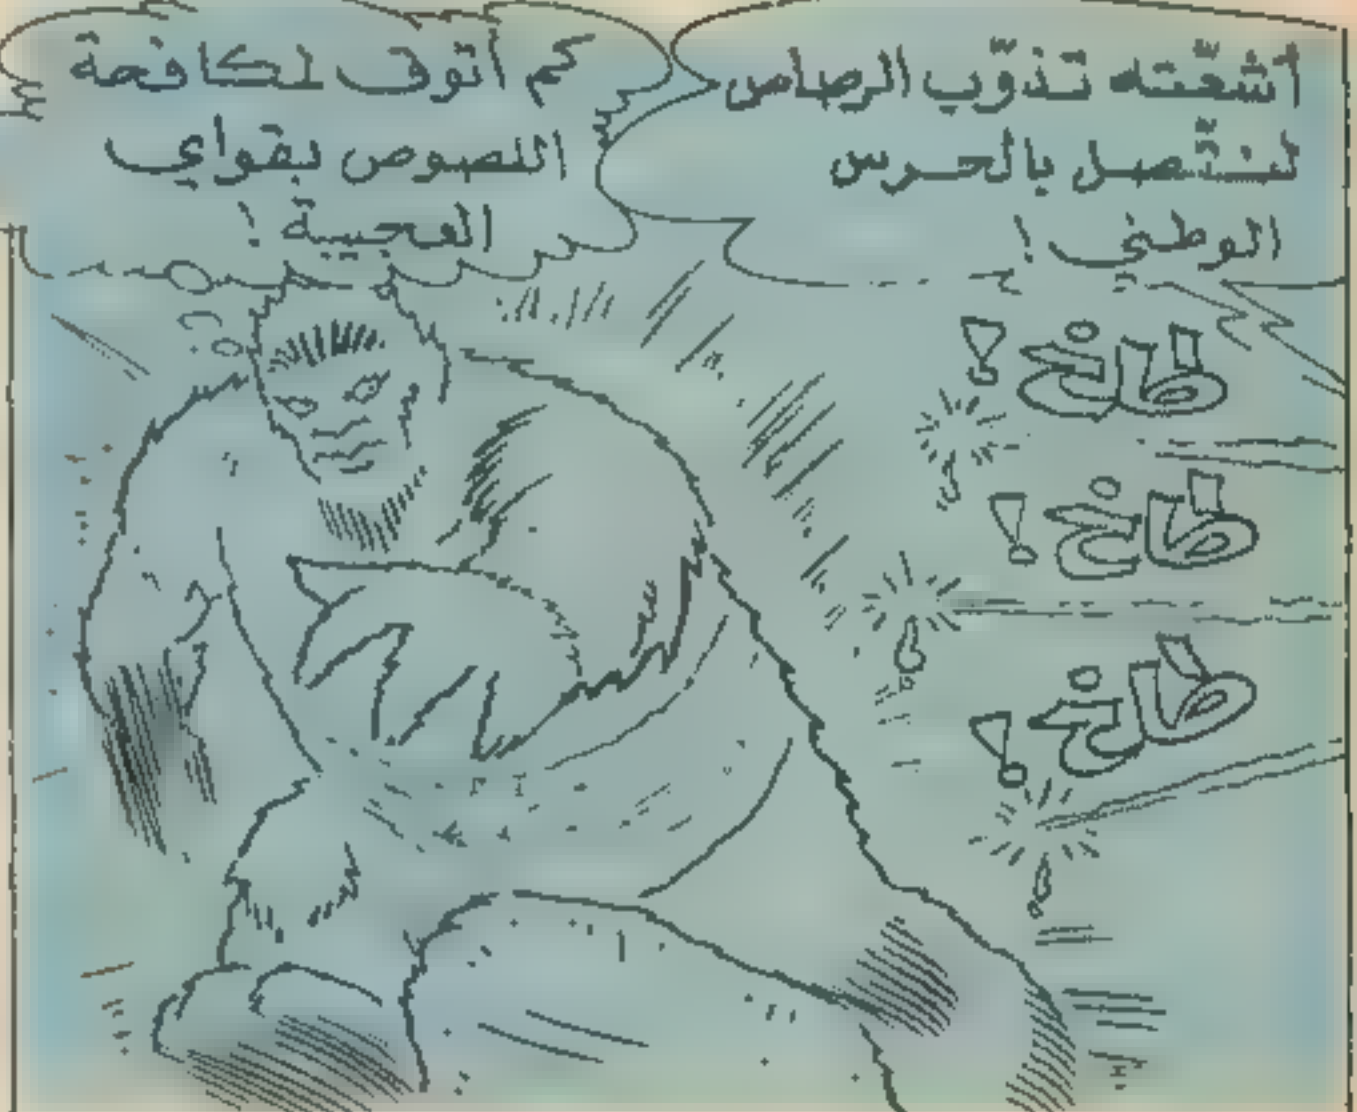 أشعّته تذوّب الرصاص
لنتّصل بالحرس
الوطني !
كم أتوق لمكافحة
اللصوص بقواي
العجيبة !
طاخ !
طاخ !
طاخ !